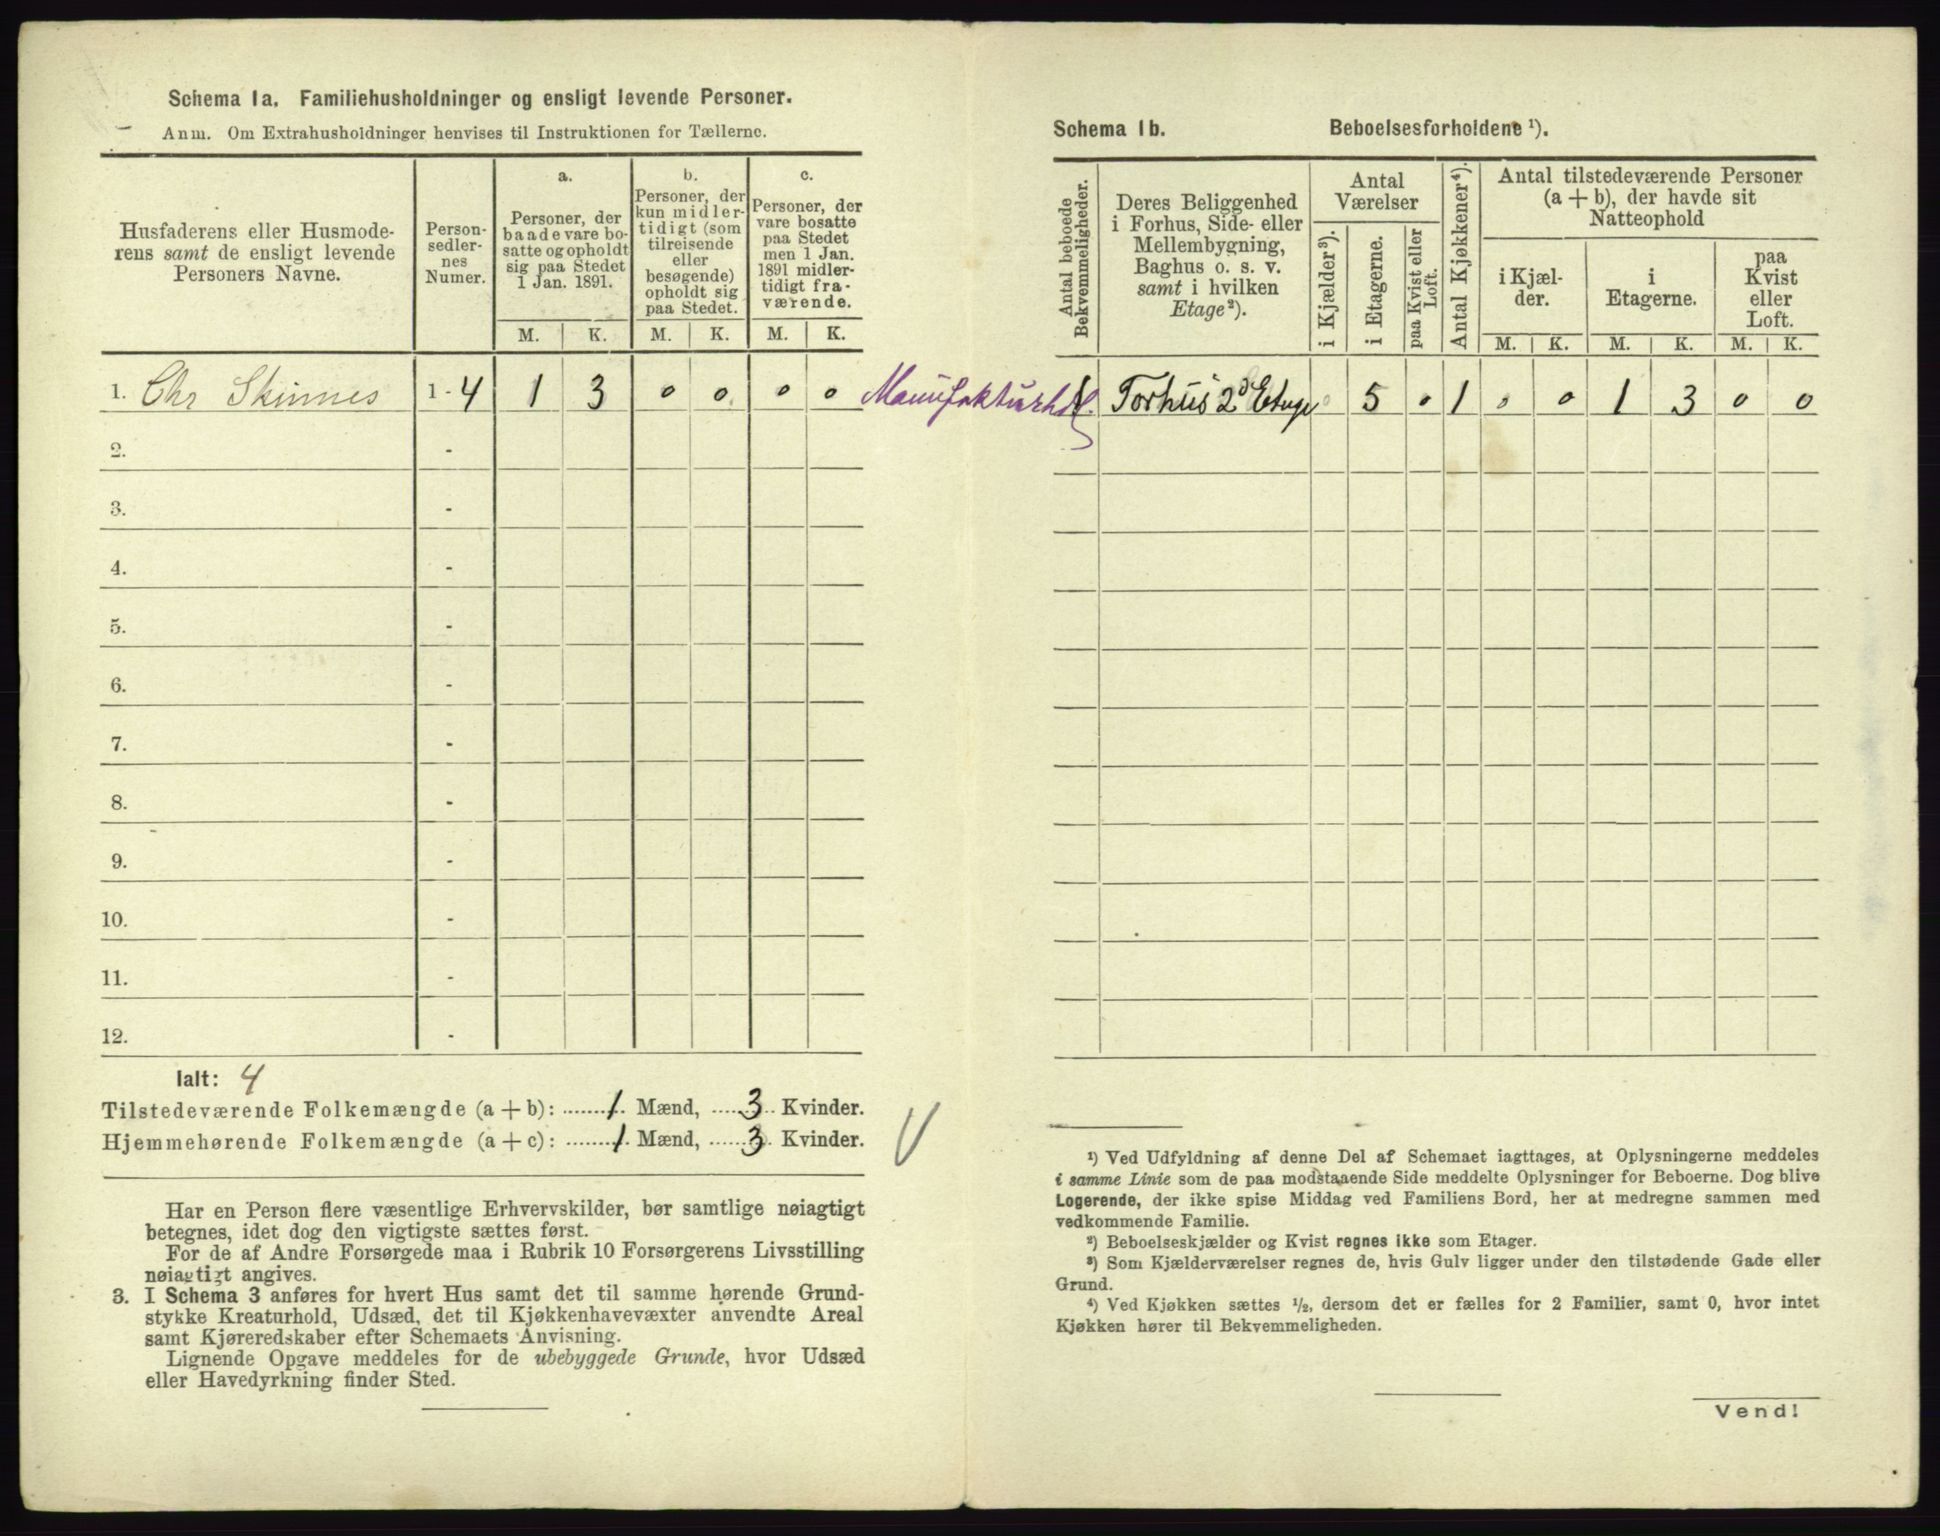 Schema 1a. Familiehusholdninger og ensligt levende Personer.
Anm. Om Extrahusholdninger henvises til Instruktionen for Tællerne.
Husfaderens eller Husmode-
rens samt de ensligt levende
Personers Navne.
Person-
sedler-
nes
Numer.
a.
Personer, der
baade vare bo-
satte og opholdt
sig paa Stedet
1 Jan. 1891.
M. K.
b.
Personer, der
kun midler-
tidigt (som
tilreisende
eller
besøgende)
opholdt sig
paa Stedet.
M. K.
c.
Personer, der
vare bosatte
paa Stedet
men 1 Jan.
1891 midler-
tidigt fra-
værende.
M. K.
1. Chr Skinnes 1-4 1 3 0 0 0 0 Manufakturhdl.
2. -
3. -
4. -
5. -
6. -
7. -
8. -
9. -
10. -
11. -
12. -
Ialt: 4
Tilstedeværende Folkemængde (a + b): 1 Mænd, 3 Kvinder.
Hjemmehørende Folkemængde (a + c): 1 Mænd, 3 Kvinder.
Har en Person flere væsentlige Erhvervskilder, bør samtlige nøiagtigt
betegnes, idet dog den vigtigste sættes først.
For de af Andre Forsørgede maa i Rubrik 10 Forsørgerens Livsstilling
nøiagtigt angives.
3. I Schema 3 anføres for hvert Hus samt det til samme hørende Grund-
stykke Kreaturhold, Udsæd, det til Kjøkkenhavevæxter anvendte Areal
samt Kjøreredskaber efter Schemaets Anvisning.
Lignende Opgave meddeles for de ubebyggede Grunde, hvor Udsæd
eller Havedyrkning finder Sted.
Schema 1b. Beboelsesforholdene ¹).
Antal beboede
Bekvemmeligheder.
Deres Beliggenhed
i Forhus, Side- eller
Mellembygning,
Baghus o. s. v.
samt i hvilken
Etage²).
Antal
Værelser
i Kjælder³).
i Etagerne.
paa Kvist eller
Loft.
Antal Kjøkkener⁴).
Antal tilstedeværende Personer
(a + b), der havde sit
Natteophold
i Kjæl-
der.
M. K.
i
Etagerne.
M. K.
paa
Kvist
eller
Loft.
M. K.
1 Forhus 2d Etage 0 5 0 1 0 0 1 3 0 0
¹) Ved Udfyldning af denne Del af Schemaet iagttages, at Oplysningerne meddeles
i samme Linie som de paa modstaaende Side meddelte Oplysninger for Beboerne. Dog blive
Logerende, der ikke spise Middag ved Familiens Bord, her at medregne sammen med
vedkommende Familie.
²) Beboelseskjælder og Kvist regnes ikke som Etager.
³) Som Kjælderværelser regnes de, hvis Gulv ligger under den tilstødende Gade eller
Grund.
⁴) Ved Kjøkken sættes ½, dersom det er fælles for 2 Familier, samt 0, hvor intet
Kjøkken hører til Bekvemmeligheden.
Vend!